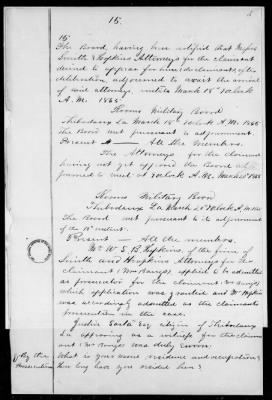 15.
15
The Board having been notified that Messrs
Smith & Hopkins Attorneys for the claimant
desired to appear for him, did after
deliberation, adjourned to await the arrival
of said attorneys, until March 18th 10 o'clock
A.M. 1865
Rooms Military Board
Thibodaux La March 18th 10 o'clock A.M. 1865
The Board met pursuant to adjournment.
Present — All the Members.
The Attorneys for the claimant
having not yet appeared the Board
adjourned to meet at 10 o'clock A.M. March 1865
Rooms Military Board
Thibodaux La March 10 o'clock A.M. 1865
The Board met pursuant to its adjournment
of the 18th instant.
Present — All the members.
Mr W. S. B. Hopkins, of the firm of
Smith and Hopkins Attorneys for the
claimant applied to be admitted
as prosecutor for the claimant
which application was granted and Mr Hopkins
was accordingly admitted as the claimants
prosecutor in the case.
citizen of Thibodaux
La appearing as a witness for the claimant
was duly sworn.
By the
Prosecution
What is your name residence and occupation?
How long have you resided here?